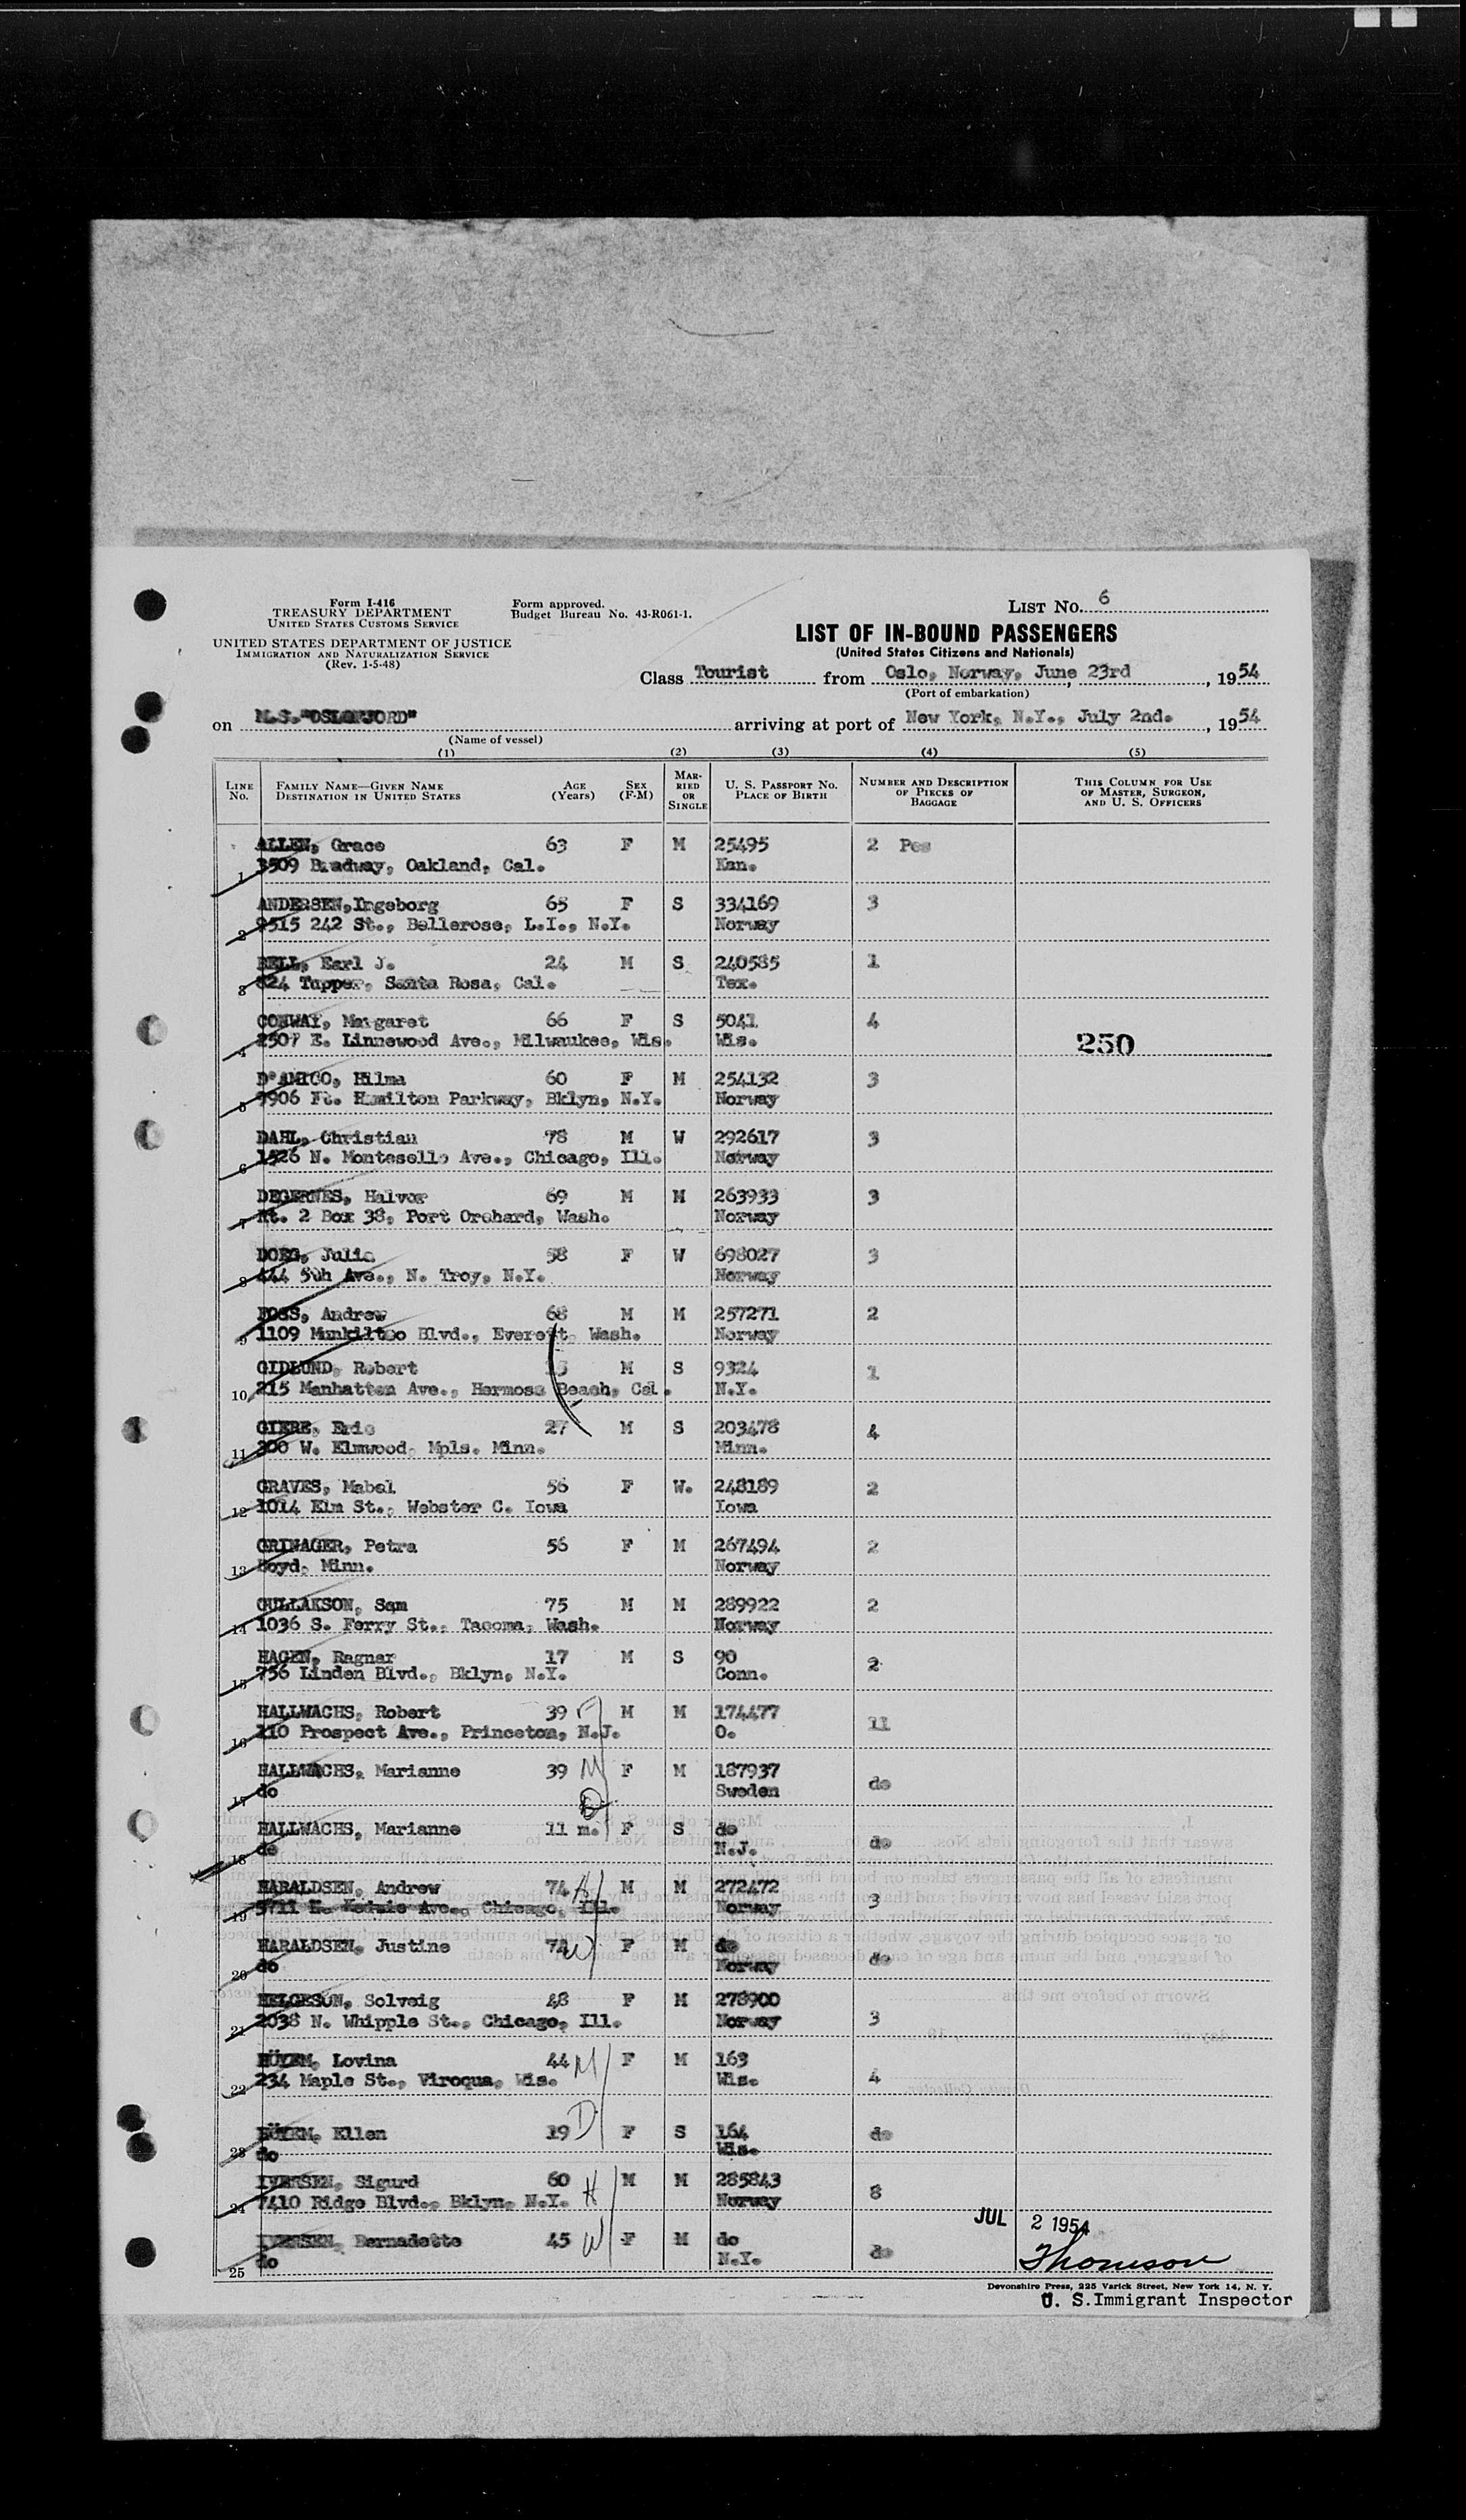 Form I-416
TREASURY DEPARTMENT
UNITED STATES CUSTOMS SERVICE
UNITED STATES DEPARTMENT OF JUSTICE
IMMIGRATION AND NATURALIZATION SERVICE
(Rev. 1-5-48)
Form approved.
Budget Bureau No. 43-R061-1.
LIST No. 6
LIST OF IN-BOUND PASSENGERS
(United States Citizens and Nationals)
Class Tourist from Oslo, Norway, June 23rd, 1954
(Port of embarkation)
on M.S."OSLOFJORD" arriving at port of New York, N.Y., July 2nd. , 1954
(Name of vessel)
(1) (2) (3) (4) (5)
LINE No. FAMILY NAME—GIVEN NAME DESTINATION IN UNITED STATES AGE (Years) SEX (F-M) MARRIED OR SINGLE U. S. PASSPORT No. PLACE OF BIRTH NUMBER AND DESCRIPTION OF PIECES OF BAGGAGE THIS COLUMN FOR USE OF MASTER, SURGEON, AND U. S. OFFICERS
ALLEN, Grace 63 F M 25495 2 Pcs
1 3509 Broadway, Oakland, Cal. Kan.
ANDERSEN,Ingeborg 65 F S 334169 3
2 9515 242 St., Bellerose, L.I., N.Y. Norway
BELL, Earl J. 24 M S 240585 1
3 824 Tupper, Santa Rosa, Cal. Tex.
CONWAY, Margaret 66 F S 5041 4
4 2507 E. Linnewood Ave., Milwaukee, Wis. Wis. 250
D'AMICO, Hilma 60 F M 254132 3
5 7906 Ft. Hamilton Parkway, Bklyn, N.Y. Norway
DAHL, Christian 78 M W 292617 3
6 1526 N. Montesello Ave., Chicago, Ill. Norway
DEGERNES, Halvor 69 M M 263933 3
7 Rt. 2 Box 38, Port Orchard, Wash. Norway
DOEG, Julia 58 F W 698027 3
8 444 5th Ave., N. Troy, N.Y. Norway
FOSS, Andrew 68 M M 257271 2
9 1109 Munkiltoo Blvd., Everett, Wash. Norway
GIDLUND, Robert M S 9324 1
10 215 Manhattan Ave., Hermosa Beach, Cal. N.Y.
GIERE, Eric 27 M S 203478 4
11 300 W. Elmwood, Mpls. Minn. Minn.
GRAVES, Mabel 56 F W. 248189 2
12 1014 Elm St., Webster C. Iowa Iowa
GRINAGER, Petra 56 F M 267494 2
13 Boyd, Minn. Norway
GULLAKSON, Sam 75 M M 289922 2
14 1036 S. Ferry St., Tacoma, Wash. Norway
HAGEN, Ragnar 17 M S 90 2
15 756 Linden Blvd., Bklyn, N.Y. Conn.
HALLWACHS, Robert 39 M M 174477 11
16 110 Prospect Ave., Princeton, N.J. O.
HALLWACHS, Marianne 39 M F M 187937 do
17 do Sweden
D
HALLWACHS, Marianne 11 m. F S do do
18 do N.J.
HARALDSEN, Andrew 74 H M M 272472 3
19 5711 N. Kedzie Ave., Chicago, Ill. Norway
HARALDSEN, Justine 72 W F M do do
20 do Norway
HELGESON, Solveig 48 F M 278900 3
21 2038 N. Whipple St., Chicago, Ill. Norway
HÖYEM, Lovina 44 M F M 163 4
22 234 Maple St., Viroqua, Wis. Wis.
HÖYEM, Ellen 19 D F S 164 do
23 do Wis.
IVERSEN, Sigurd 60 H M M 285843 8
24 7410 Ridge Blvd., Bklyn, N.Y. Norway
IVERSEN, Bernadette 45 W F M do do
25 do N.Y.
JUL 2 1954
Thomson
Devonshire Press, 225 Varick Street, New York 14, N. Y.
U. S. Immigrant Inspector